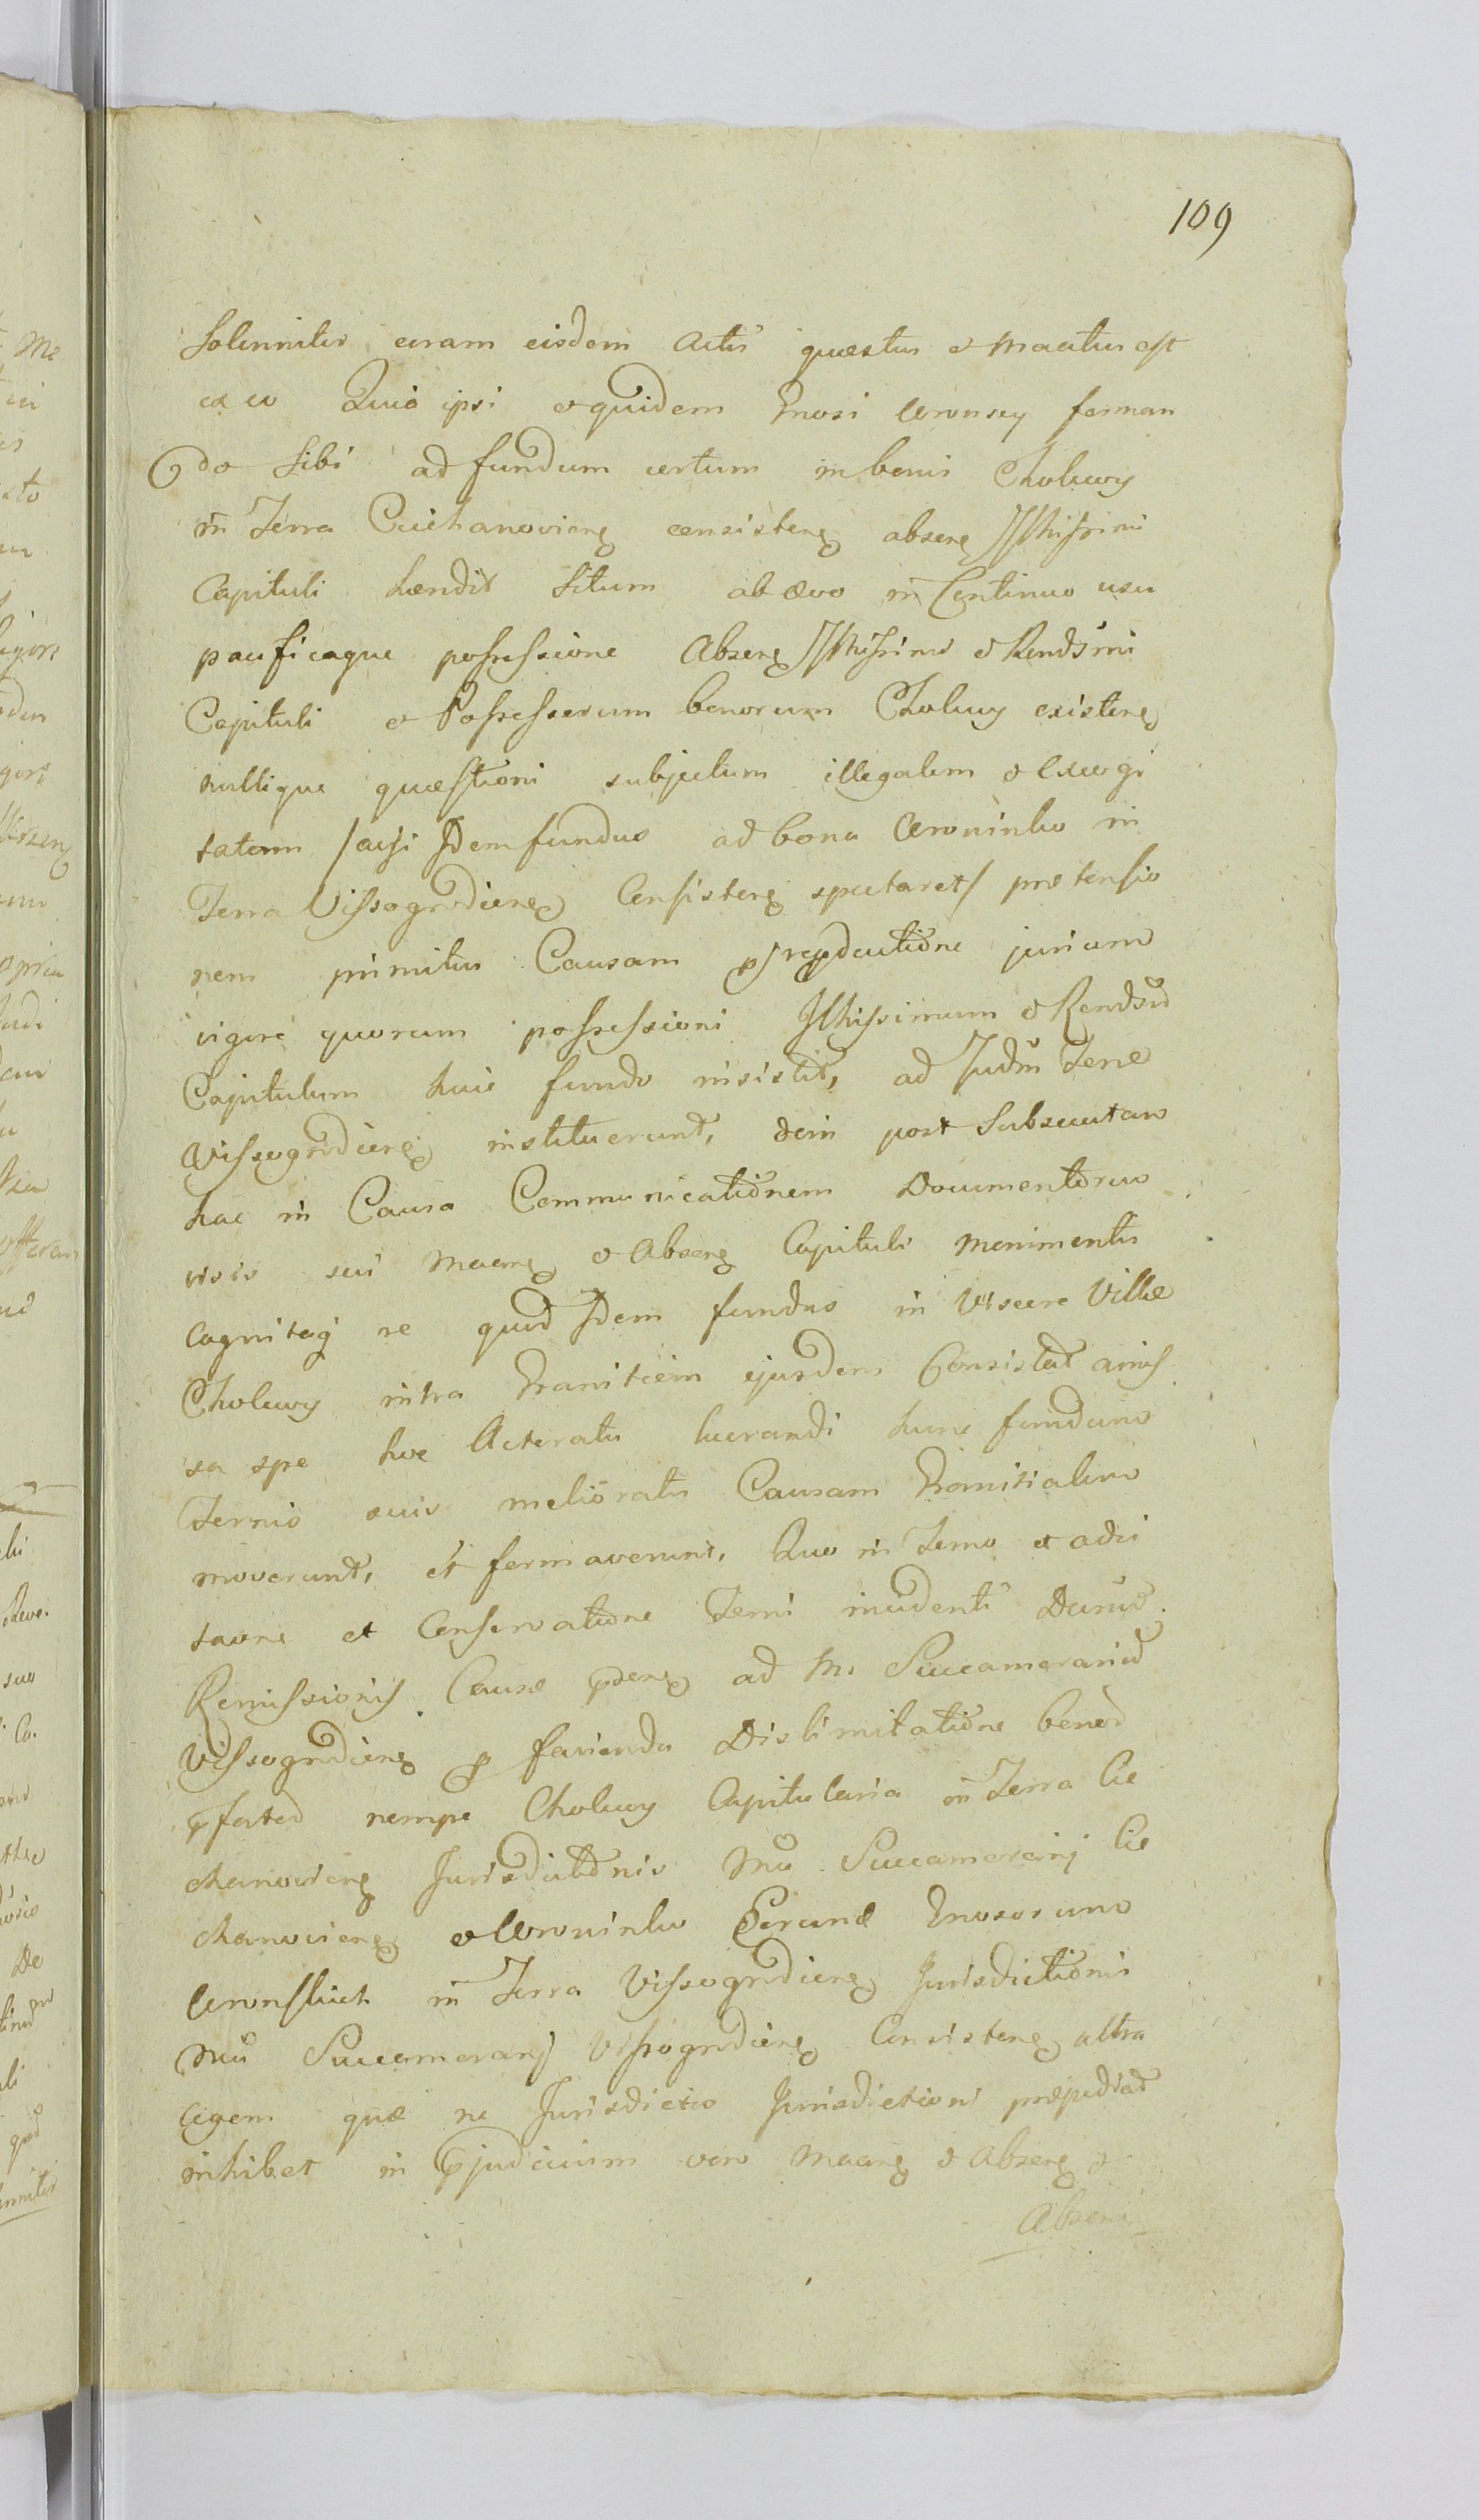 109
Solenniter coram eisdem Actis quæstus & Maatus est
ex eo Quia ipsi & quidem Gnosi Wronscy forman
do sibi ad fundum certum in bonis Cholewy
in Terra Ciechanovieng consisteng abseng Illssrimi
Capituli hændit situm ab ævo in Continuo usu
pacificaque possessione Abseng Illssrimi & Rendsmi
Capituli & Possessorum bonorum Cholewy existeng
nullique quæstioni subjectum illegalem & excogi
tatam /acsi Idem fundus ad bona Wroninko in
Terra Vissogrodieng Consisteng spectaret/ prætensio
nem primitus Causam p reproductione jurium
vigore quorum possessioni Illssimum & Rendsm
Capitulum huic fundo insistit, ad Judm Terre
Vissogrodieng instituerunt, dein post Subsecutam
hac in Causa Communicationem Documentorum
visis sui Maang & Abseng Capituli Monimentis
Cognitaq re quod Idem fundus in Viscere Villæ
Cholewy intra Granitiem ejusdem Consistat amis
sa spe hoc Actoratu lucrandi hunc fundum
Termis suis melioratis Causam Granitialem
moverunt, et formaverunt, Quo in Termo ex adci
taone et Conservatione Termi incidenti Darum
Remissionis Causæ pseng ad M. Succamerarium
Vissogrodieng p facienda Dislimitatione bonor
pfator nempe Cholewy Capitularia in Terra Cie
chanovieng Jurisdictionis Mci Succamerarij Cie
chanovieng & Wroninko Eorund Gnosorum
Wronskich in Terra Vissogrodieng Jurisdictionis
Mci Succamerarij Vissogrodieng Consisteng ultra
legem quæ ne Jurisdictio Jurisdictioni præjudicet
inhibet in pjudicium vero Maang & Abseng &
Absen